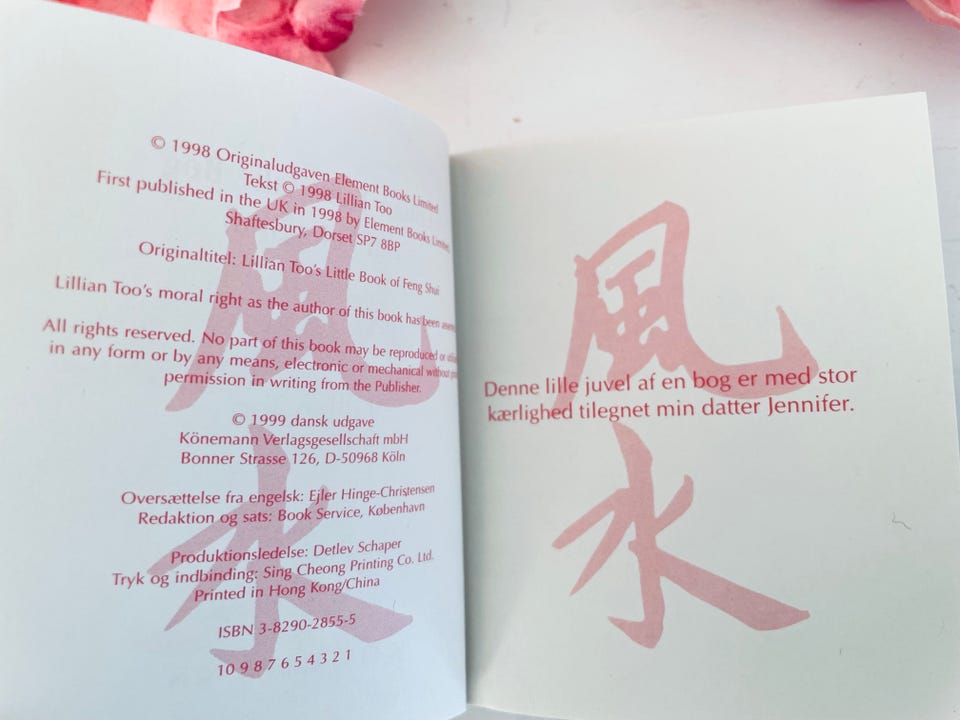 © 1998 Originaludgaven Element Books Limited
Tekst © 1998 Lillian Too
First published in the UK in 1998 by Element Books Limited
Shaftesbury, Dorset SP7 8BP
Originaltitel: Lillian Too's Little Book of Feng Shui
Lillian Too's moral right as the author of this book has been
All rights reserved. No part of this book may be reproduced or
in any form or by any means, electronic or mechanical without
permission in writing from the Publisher.
© 1999 dansk udgave
Könemann Verlagsgesellschaft mbH
Bonner Strasse 126, D-50968 Köln
Oversættelse fra engelsk: Ejler Hinge-Christensen
Redaktion og sats: Book Service, København
Produktionsledelse: Detlev Schaper
Tryk og indbinding: Sing Cheong Printing Co. Ltd.
Printed in Hong Kong/China
ISBN 3-8290-2855-5
10 9 8 7 6 5 4 3 2 1
風
水
風
Denne lille juvel af en bog er med stor
kærlighed tilegnet min datter Jennifer.
水